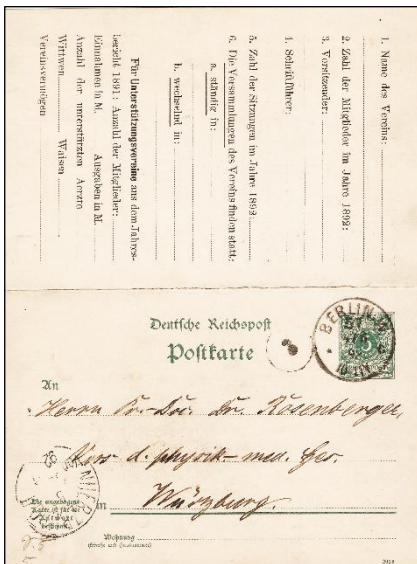 1. Name des Vereins:
2. Zahl der Mitglieder im Jahre 1892:
3. Vorsitzender:
4. Schriftführer:
5. Zahl der Sitzungen im Jahre 1892:
6. Die Versammlungen des Vereins finden statt:
a. ständig in:
b. wechselnd in:
Für Unterstützungsvereine aus dem Jahres-
bericht 1891: Anzahl der Mitglieder:
Einnahmen in M. Ausgaben in M.
Anzahl der unterstützten Aerzte
Wittwen Waisen
Vereinsvermögen
BERLIN W
5
Deutsche Reichspost
Postkarte
An
Herrn Pr.-Doc. Dr. Rosenberger,
d. physik-med. Ges.
in Würzburg.
Die angebogene
Karte ist für die
Antwort
bestimmt.
Wohnung
(Straße und Hausnummer)